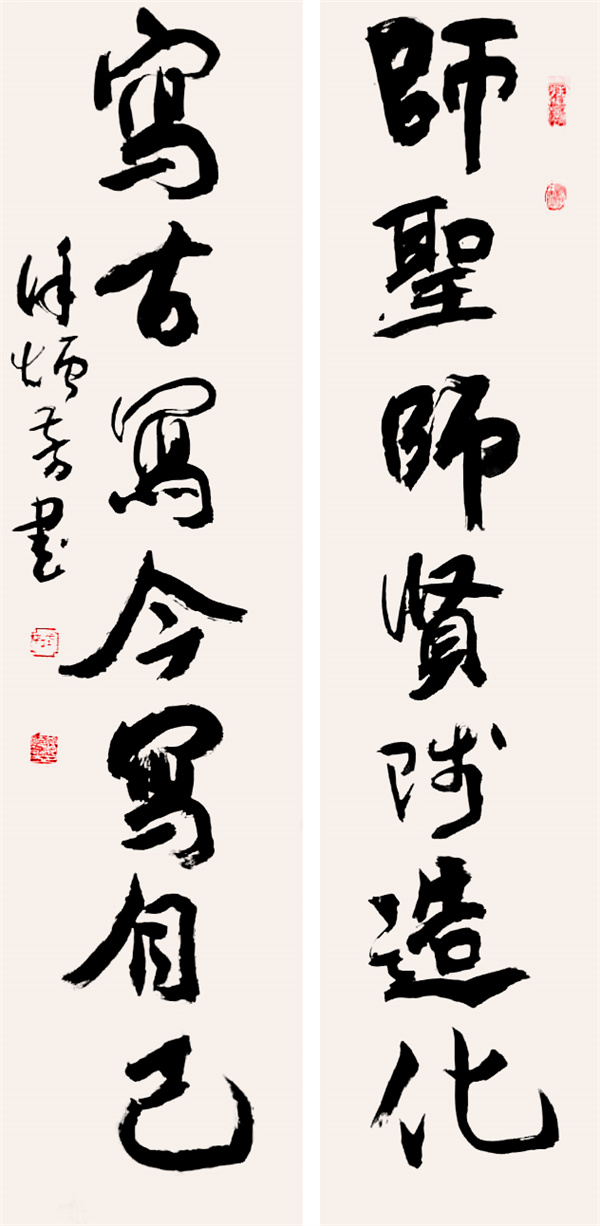 師聖師賢師造化
寫古寫今寫自己
書